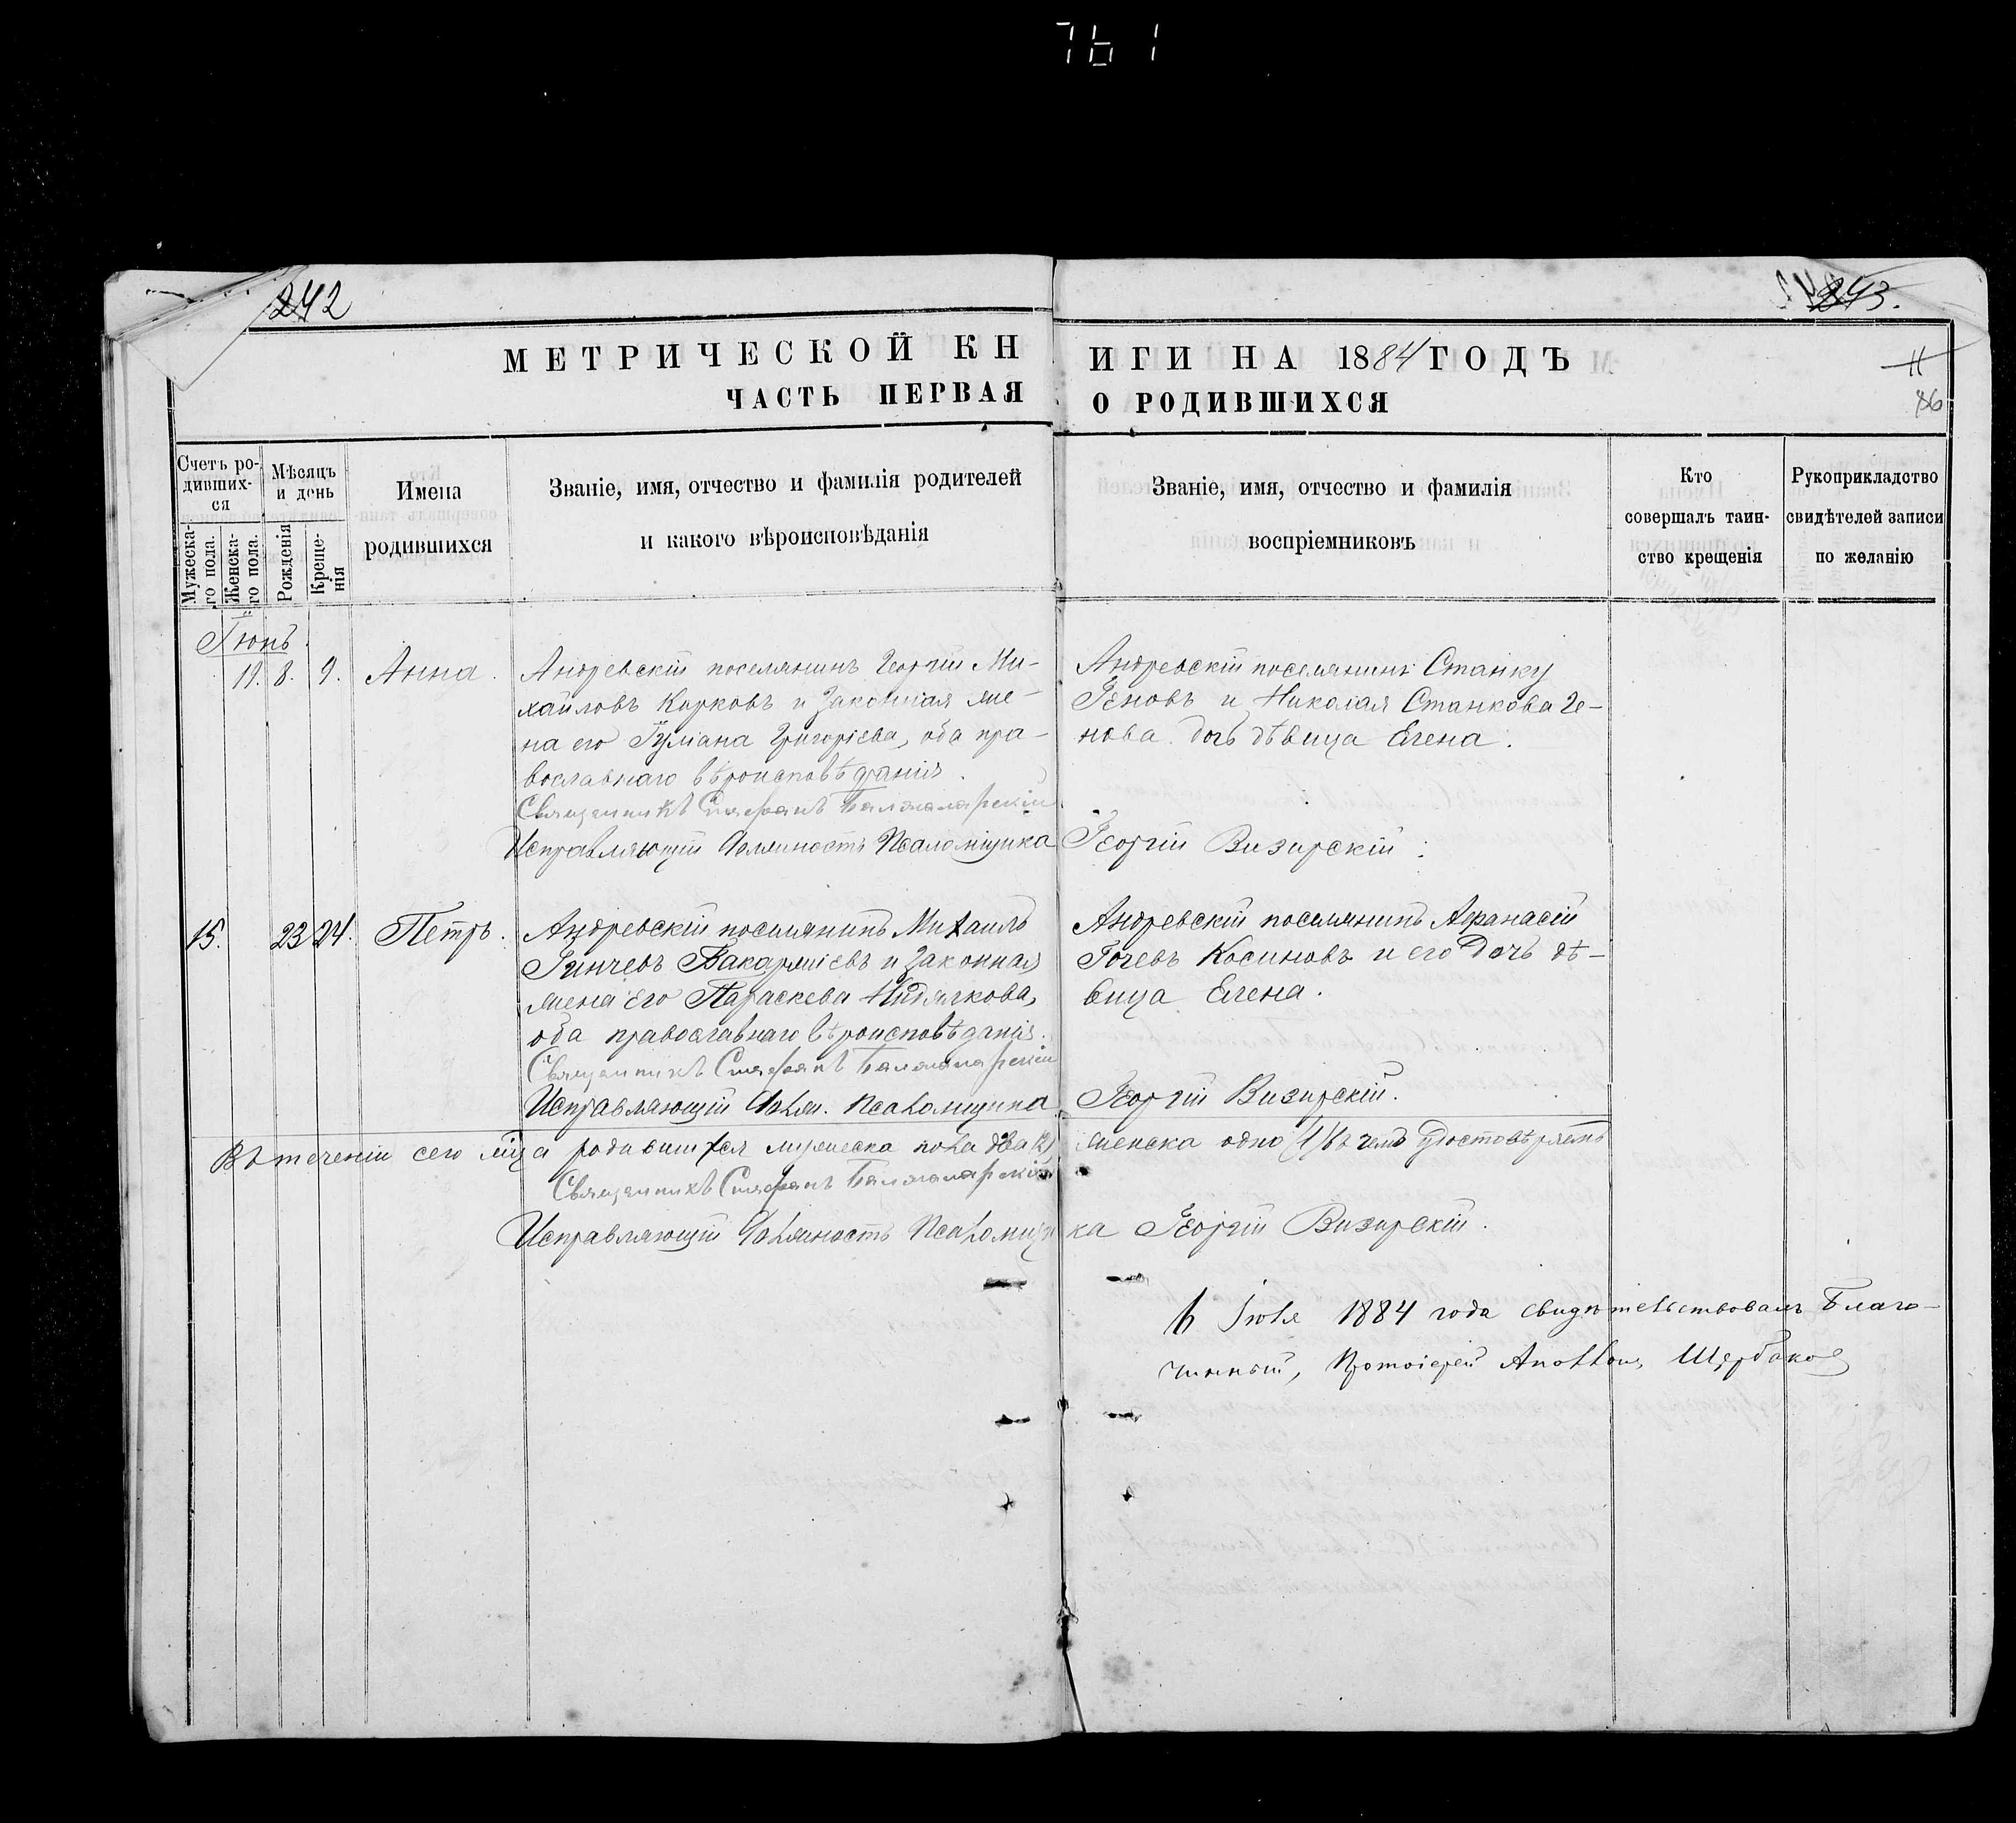 761
242
243.
МЕТРИЧЕСКОЙ КН
ИГИ НА 1884 ГОДЪ
11
86
ЧАСТЬ ПЕРВАЯ
О РОДИВШИХСЯ
Счетъ ро-
дивших-
ся
Мужеска-
го пола.
Женска-
го пола.
Мѣсяцъ
и день
Рожденія
Креще-
нія
Имена
родившихся
Званіе, имя, отчество и фамилія родителей
и какого вѣроисповѣданія
Званіе, имя, отчество и фамилія
воспріемниковъ
Кто
совершалъ таин-
ство крещенія
Рукоприкладство
свидѣтелей записи
по желанію
Іюнь.
8. 9. Анна.
Андревскій поселянинъ Георгій Ми-
хайловъ Карковъ и законная же-
на его Григоріева, оба пра-
вославнаго вѣроисповѣданія.
Священникъ Стефанъ
Исправляющій должность Псаломщика
Андревскій поселянинъ Станку
Геновъ и Николая Станкова Ге-
нова дочь дѣвица Елена.
Георгій Визирскій.
15. 23 24. Петръ.
Андревскій поселянинъ Михаилъ
и законная
жена его Параскева
оба православнаго вѣроисповѣданія.
Священникъ Стефанъ
Исправляющій долж. Псаломщика
Андревскій поселянинъ Афанасій
Гочевъ Косиновъ и его дочь дѣ-
вица Елена.
Георгій Визирскій.
Въ теченіи сего мца родившихся мужеска пола два (2) женска одно (1) въ чемъ удостовѣряемъ
Священникъ Стефанъ
Исправляющій должность Псаломщика Георгій Визирскій.
6 Іюля 1884 года свидѣтельствовалъ Благо-
чинный, Протоіерей Аполлонъ Щербаков